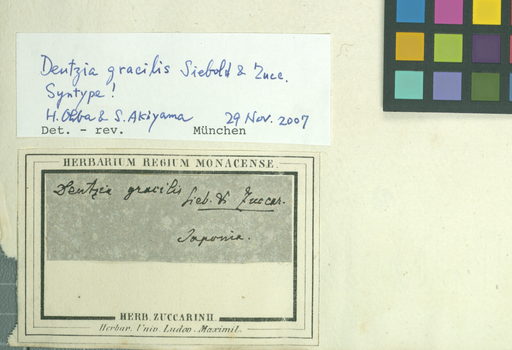 Deutzia gracilis Siebold & Zucc.
Syntype!
H. Ohba & S. Akiyama 29 Nov. 2007
Det. - rev. München
HERBARIUM REGIUM MONACENSE.
Deutzia gracilis
Sieb. & Zuccar.
Japonia.
HERB. ZUCCARINII.
Herbar. Univ. Ludov. Maximil.